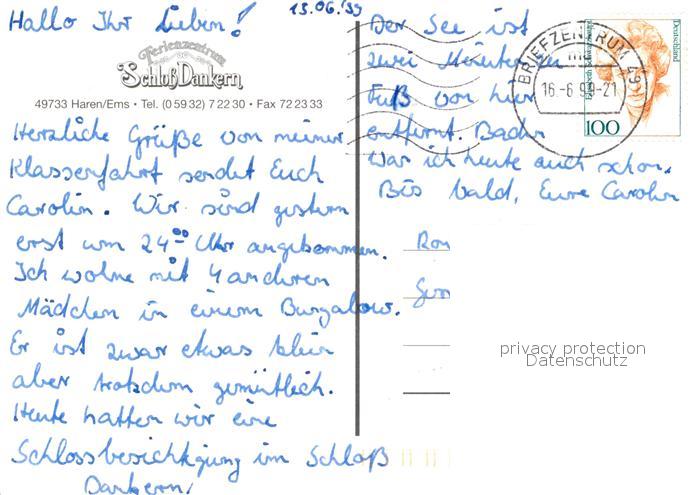 Hallo Ihr Lieben! 15.06.99
Ferienzentrum
Schloß Dankern
49733 Haren/Ems • Tel. (0 59 32) 7 22 30 • Fax 72 23 33
Herzliche Grüße von meiner
Klassenfahrt sendet Euch
Carolin. Wir sind gestern
erst um 24⁰⁰ Uhr angekommen.
Ich wohne mit 4 anderen
Mädchen in einem Bungalow.
Er ist zwar etwas klein
aber trotzdem gemütlich.
Heute hatten wir eine
Schlossbesichtigung im Schloß
Dankern.
Der See ist
zwei Minuten zu
Fuß von hier
entfernt. Baden
war ich heute auch schon.
Bis bald, Eure Carolin
BRIEFZENTRUM 49
16.-6.99-21
Deutschland
100
privacy protection
Datenschutz